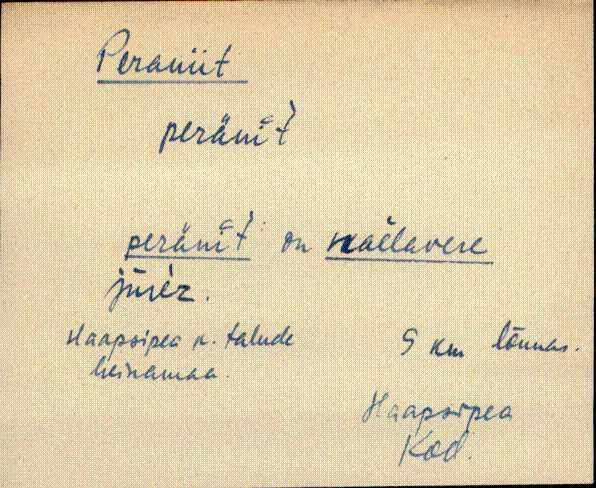 Peraniit
peränìt̀
peränìt̀ on naelavere
jūrez.
Haapsipea k. talude
heinamaa.
9 km lõunas.
Haapsipea
Kod.